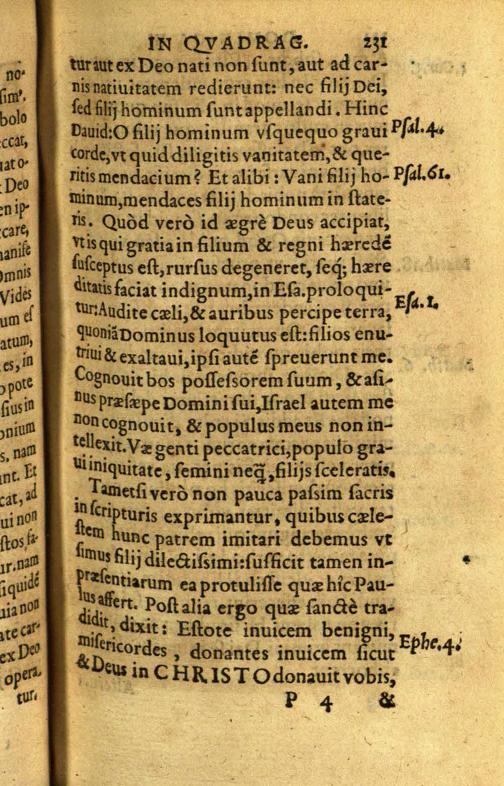 IN QVADRAG. 231
tur aut ex Deo nati non ſunt, aut ad car-
nis natiuitatem redierunt: nec filij Dei,
ſed filij hominum ſunt appellandi. Hinc
Dauid: O filij hominum vſquequo graui Pſal. 4.
corde, vt quid diligitis vanitatem, & quę-
ritis mendacium? Et alibi: Vani filij ho- Pſal. 61.
minum, mendaces filij hominum in ſtate-
ris. Quòd verò id ægrè Deus accipiat,
vt is qui gratia in filium & regni hæredē
ſuſceptus eſt, rurſus degeneret, ſeq; hære
ditatis faciat indignum, in Eſa. proloqui-
tur: Audite cæli, & auribus percipe terra, Eſa. 1.
quoniā Dominus loquutus eſt: filios enu-
triui & exaltaui, ipſi autē ſpreuerunt me.
Cognouit bos poſſeſſorem ſuum, & aſi-
nus præſæpe Domini ſui, Iſrael autem me
non cognouit, & populus meus non in-
tellexit. Væ genti peccatrici, populo gra-
ui iniquitate, ſemini neq̃, filijs ſceleratis.
Tametſi verò non pauca paſsim ſacris
in ſcripturis exprimantur, quibus cæle-
ſtem hunc patrem imitari debemus vt
ſimus filij dilectiſsimi: ſufficit tamen in-
præſentiarum ea protuliſſe quæ hîc Pau-
lus affert. Poſt alia ergo quæ ſanctè tra-
didit, dixit: Eſtote inuicem benigni,
miſericordes, donantes inuicem ſicut Ephe. 4.
& Deus in CHRISTO donauit vobis,
P 4 &
no-
ſim'.
bolo
eccat,
iat o-
Deo
en ip-
care,
maniſe
Omnis
Vidēs
um eſ
atum,
es, in
pote
ſius in
onium
s. nam
nt. Et
cat, ad
ui non
ſtos fa-
ur. nam
ſiquidē
uia non
ate car-
ex Deo
opera.
tur,